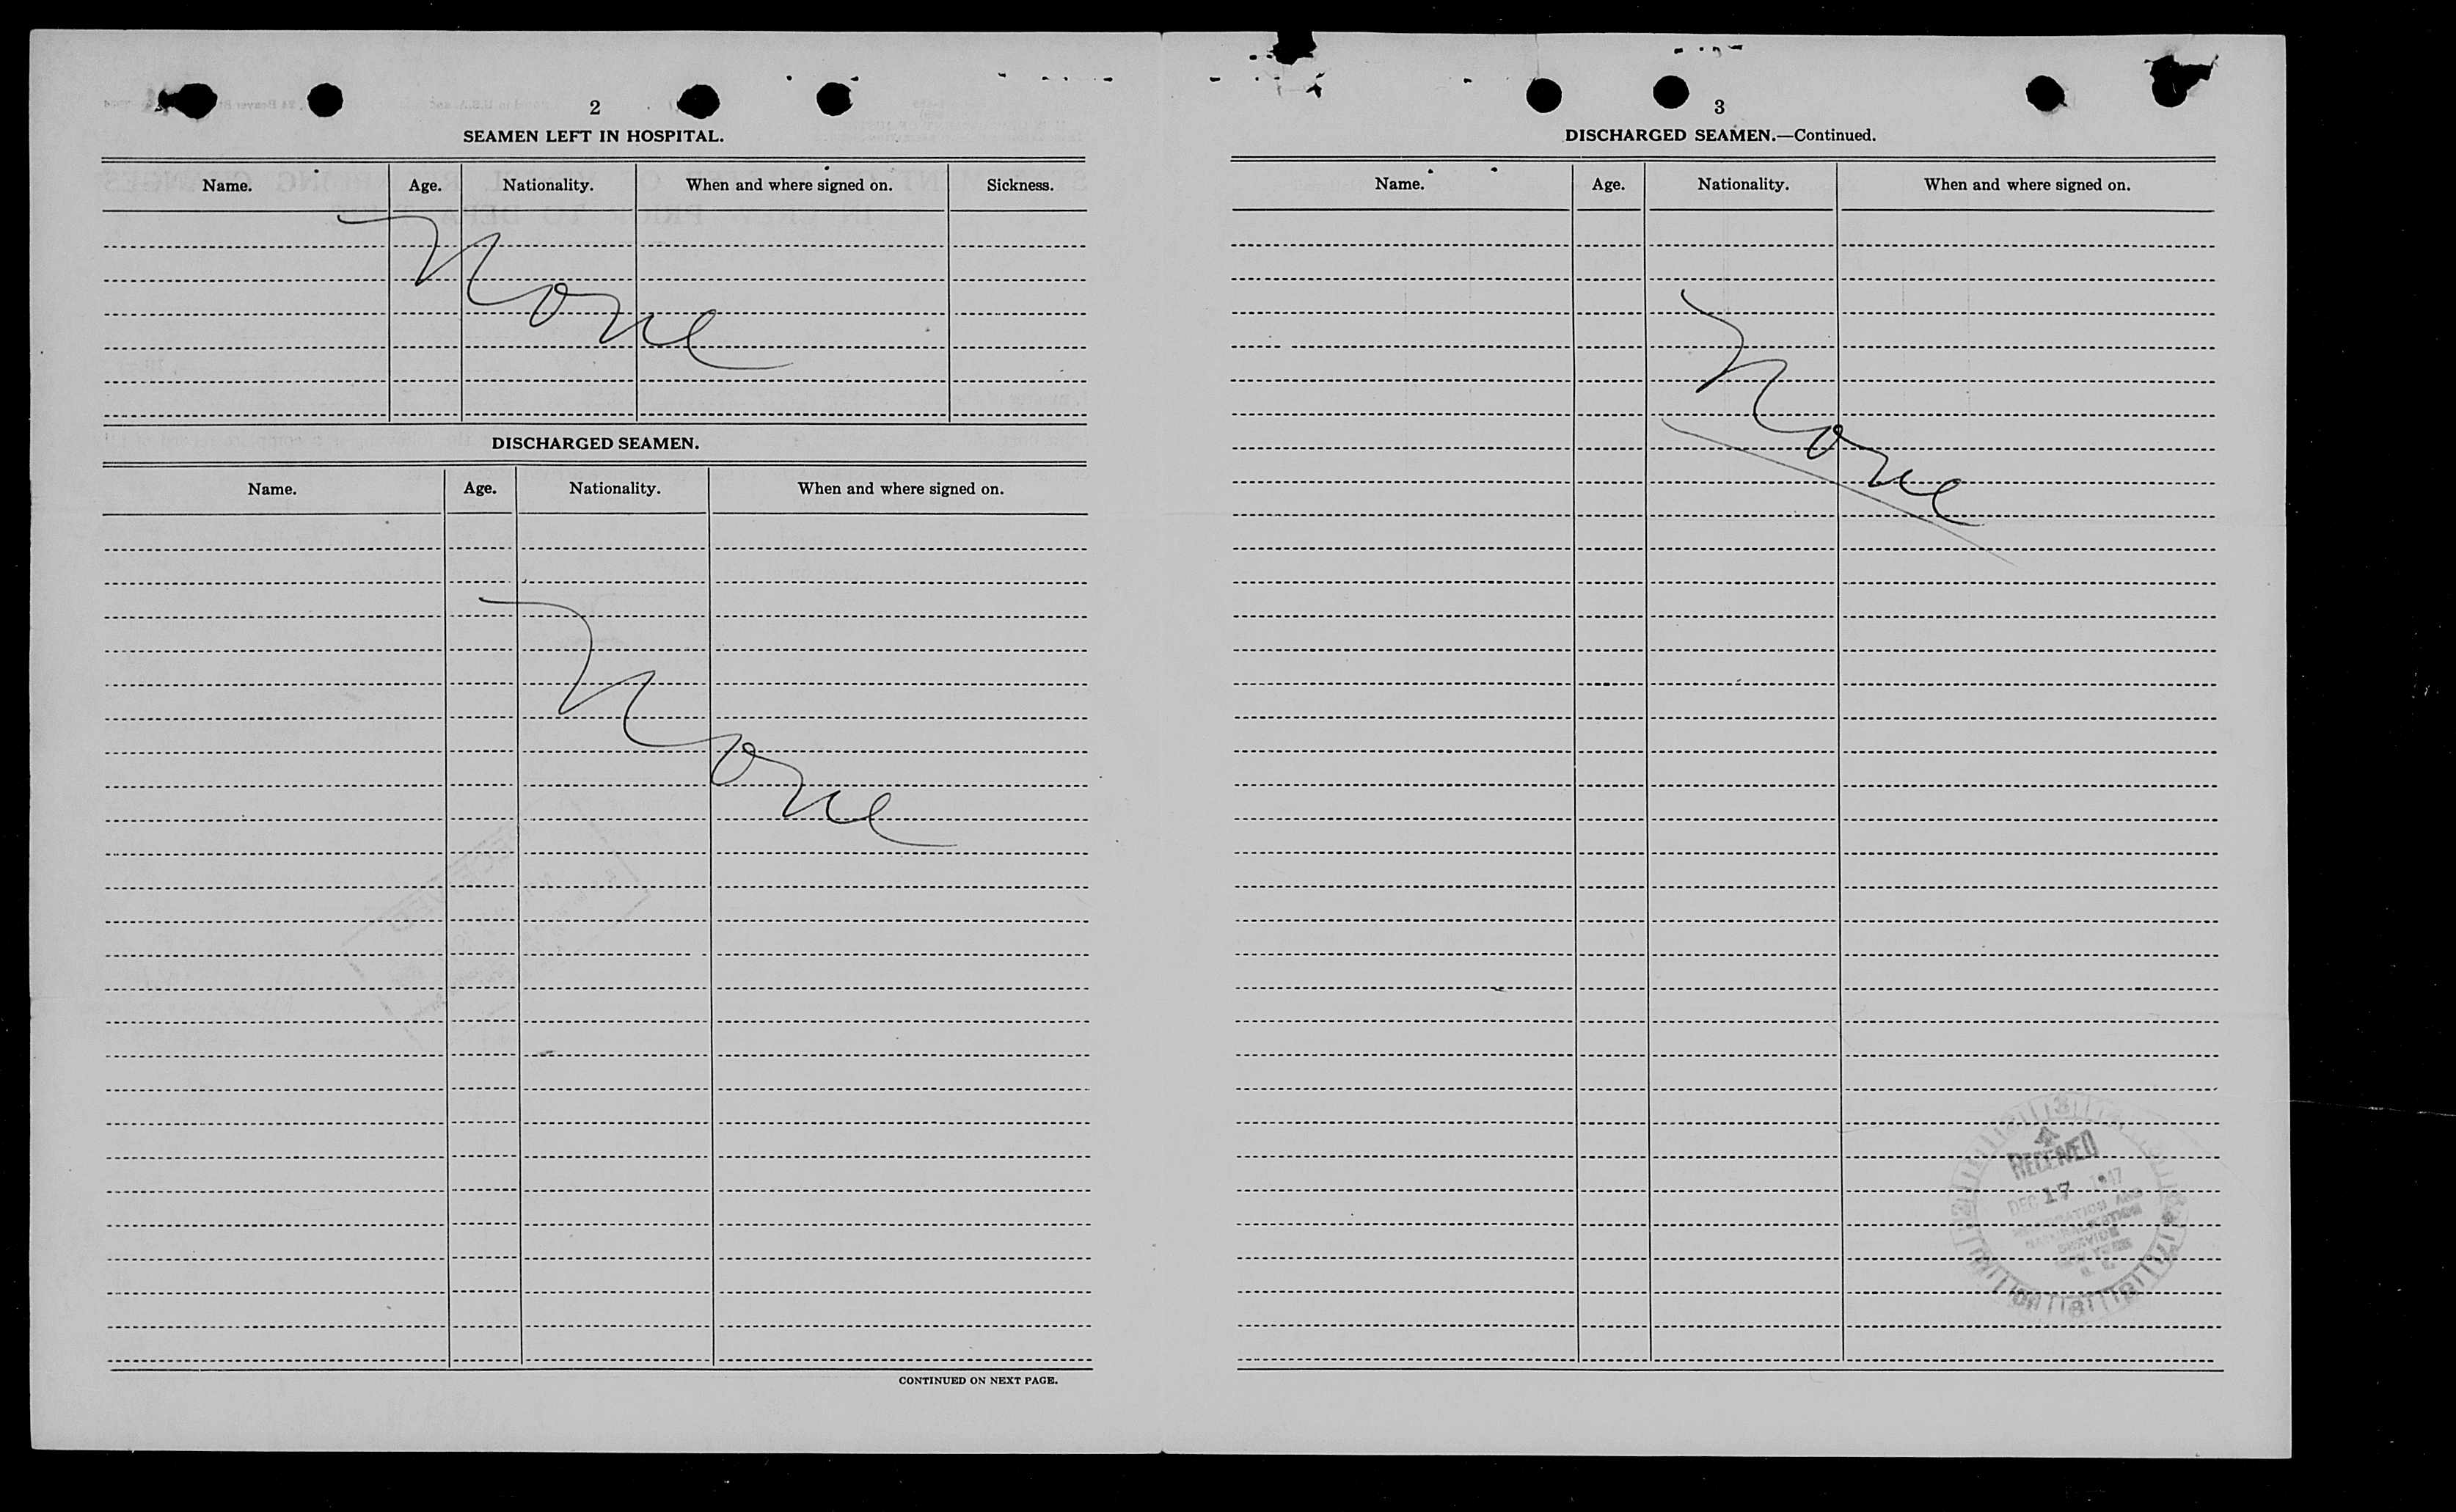 2
SEAMEN LEFT IN HOSPITAL.
Name. Age. Nationality. When and where signed on. Sickness.
None
DISCHARGED SEAMEN.
Name. Age. Nationality. When and where signed on.
None
CONTINUED ON NEXT PAGE.
3
DISCHARGED SEAMEN.—Continued.
Name. Age. Nationality. When and where signed on.
None
RECEIVED
DEC 17 1947
IMMIGRATION AND
NATURALIZATION
SERVICE